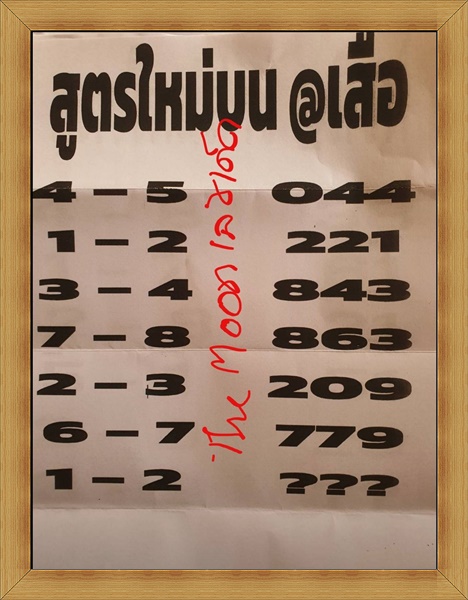 สูตรใหม่บน @เสือ
4 – 5 044
1 – 2 221
3 – 4 843
7 – 8 863
2 – 3 209
6 – 7 779
1 – 2 ???
The Moon เลขเด็ด